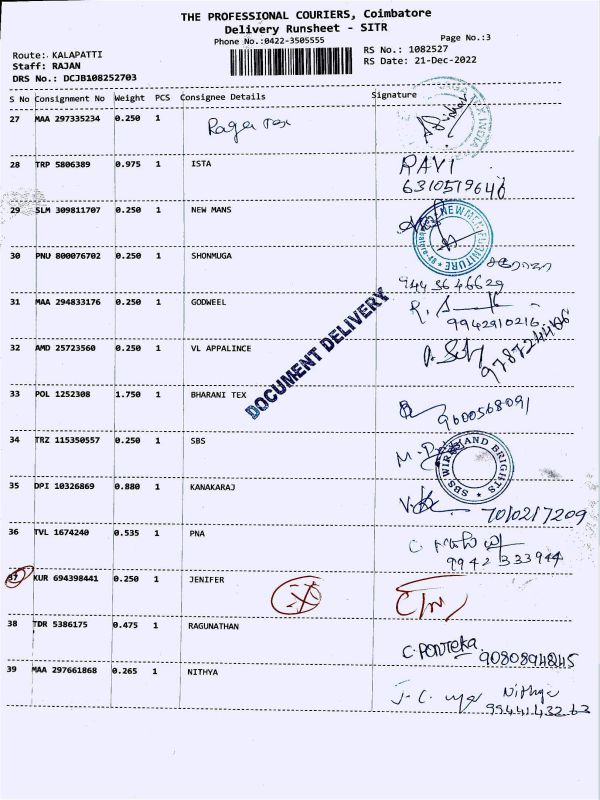 THE PROFESSIONAL COURIERS, Coimbatore
Delivery Runsheet - SITR
Phone No.:0422-3505555
Page No.:3
Route: KALAPATTI
RS No.: 1082527
Staff: RAJAN
RS Date: 21-Dec-2022
DRS No.: DCJB108252703
S No Consignment No Weight PCS Consignee Details Signature
27 MAA 297335234 0.250 1
28 TRP 5806389 0.975 1 ISTA RAVI
6310579646
29 SLM 309811707 0.250 1 NEW MANS
30 PNU 800076702 0.250 1 SHONMUGA
9443646629
31 MAA 294833176 0.250 1 GODWEEL
9942910216
32 AMD 25723560 0.250 1 VL APPALINCE
DOCUMENT DELIVERY
33 POL 1252308 1.750 1 BHARANI TEX
9600568091
34 TRZ 115350557 0.250 1 SBS
35 DPI 10326869 0.880 1 KANAKARAJ
36 TVL 1674240 0.535 1 PNA
9942333944
37 KUR 694398441 0.250 1 JENIFER
38 TDR 5386175 0.475 1 RAGUNATHAN
9080894845
39 MAA 297661868 0.265 1 NITHYA Nithya